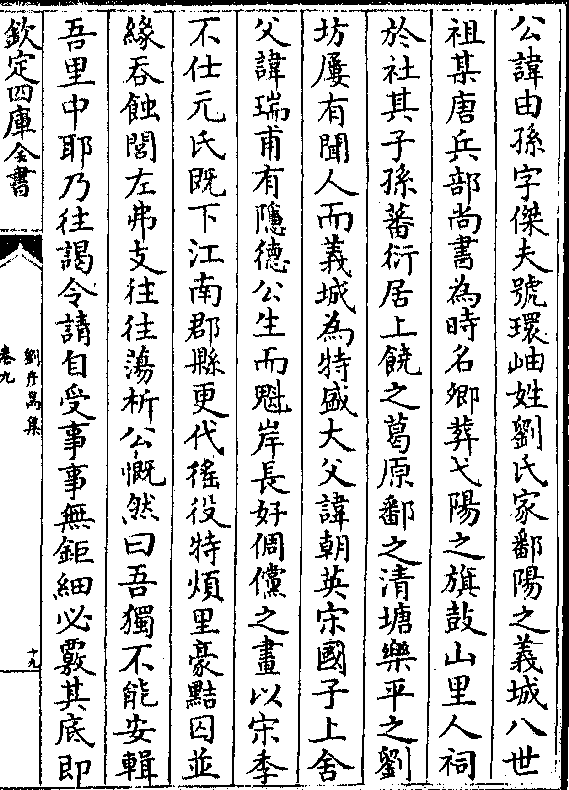 公諱由孫字傑夫號環岫姓劉氏家鄱陽之義城八世
祖某唐兵部尚書為時名卿葬弋陽之旗鼓山里人祠
於社其子孫蕃衍居上饒之葛原鄱之清塘樂平之劉
坊屢有聞人而義城為特盛大父諱朝英宋國子上舍
父諱瑞甫有隱德公生而魁岸長好倜儻之畫以宋季
不仕元氏既下江南郡縣更代徭役特煩里豪黠囚並
緣吞蝕閭左弗支往往蕩析公慨然曰吾獨不能安輯
吾里中耶乃往謁令請自受事事無鉅細必覈其底即
欽定四庫全書
劉彦昺集
卷九
十九